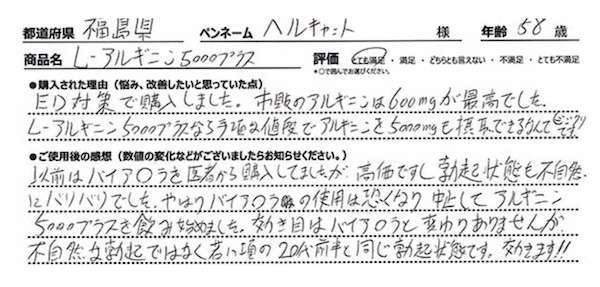 都道府県 福島県 ペンネーム ヘルキャット 様 年齢 58 歳
商品名 L-アルギニン5000プラス 評価 とても満足 ・ 満足 ・ どちらとも言えない ・ 不満足 ・ とても不満足
*○で囲んでお選びください。
●購入された理由（悩み、改善したいと思っていた点）
ED対策で購入しました。市販のアルギニンは600mgが最高でした。
L-アルギニン5000プラスなら手頃な値段でアルギニンを5000mgも摂取できるなんてビックリです
●ご使用後の感想（数値の変化などがございましたらお知らせください。）
以前はバイア○ラを医者から購入してましたが、高価ですし勃起状態も不自然
にバリバリでした。やはりバイア○ラ の使用は恐くなり中止してアルギニン
5000プラスを飲み始めました。効き目はバイア○ラと変わりありませんが
不自然な勃起ではなく若い頃の20代前半と同じ勃起状態です。効きます!!